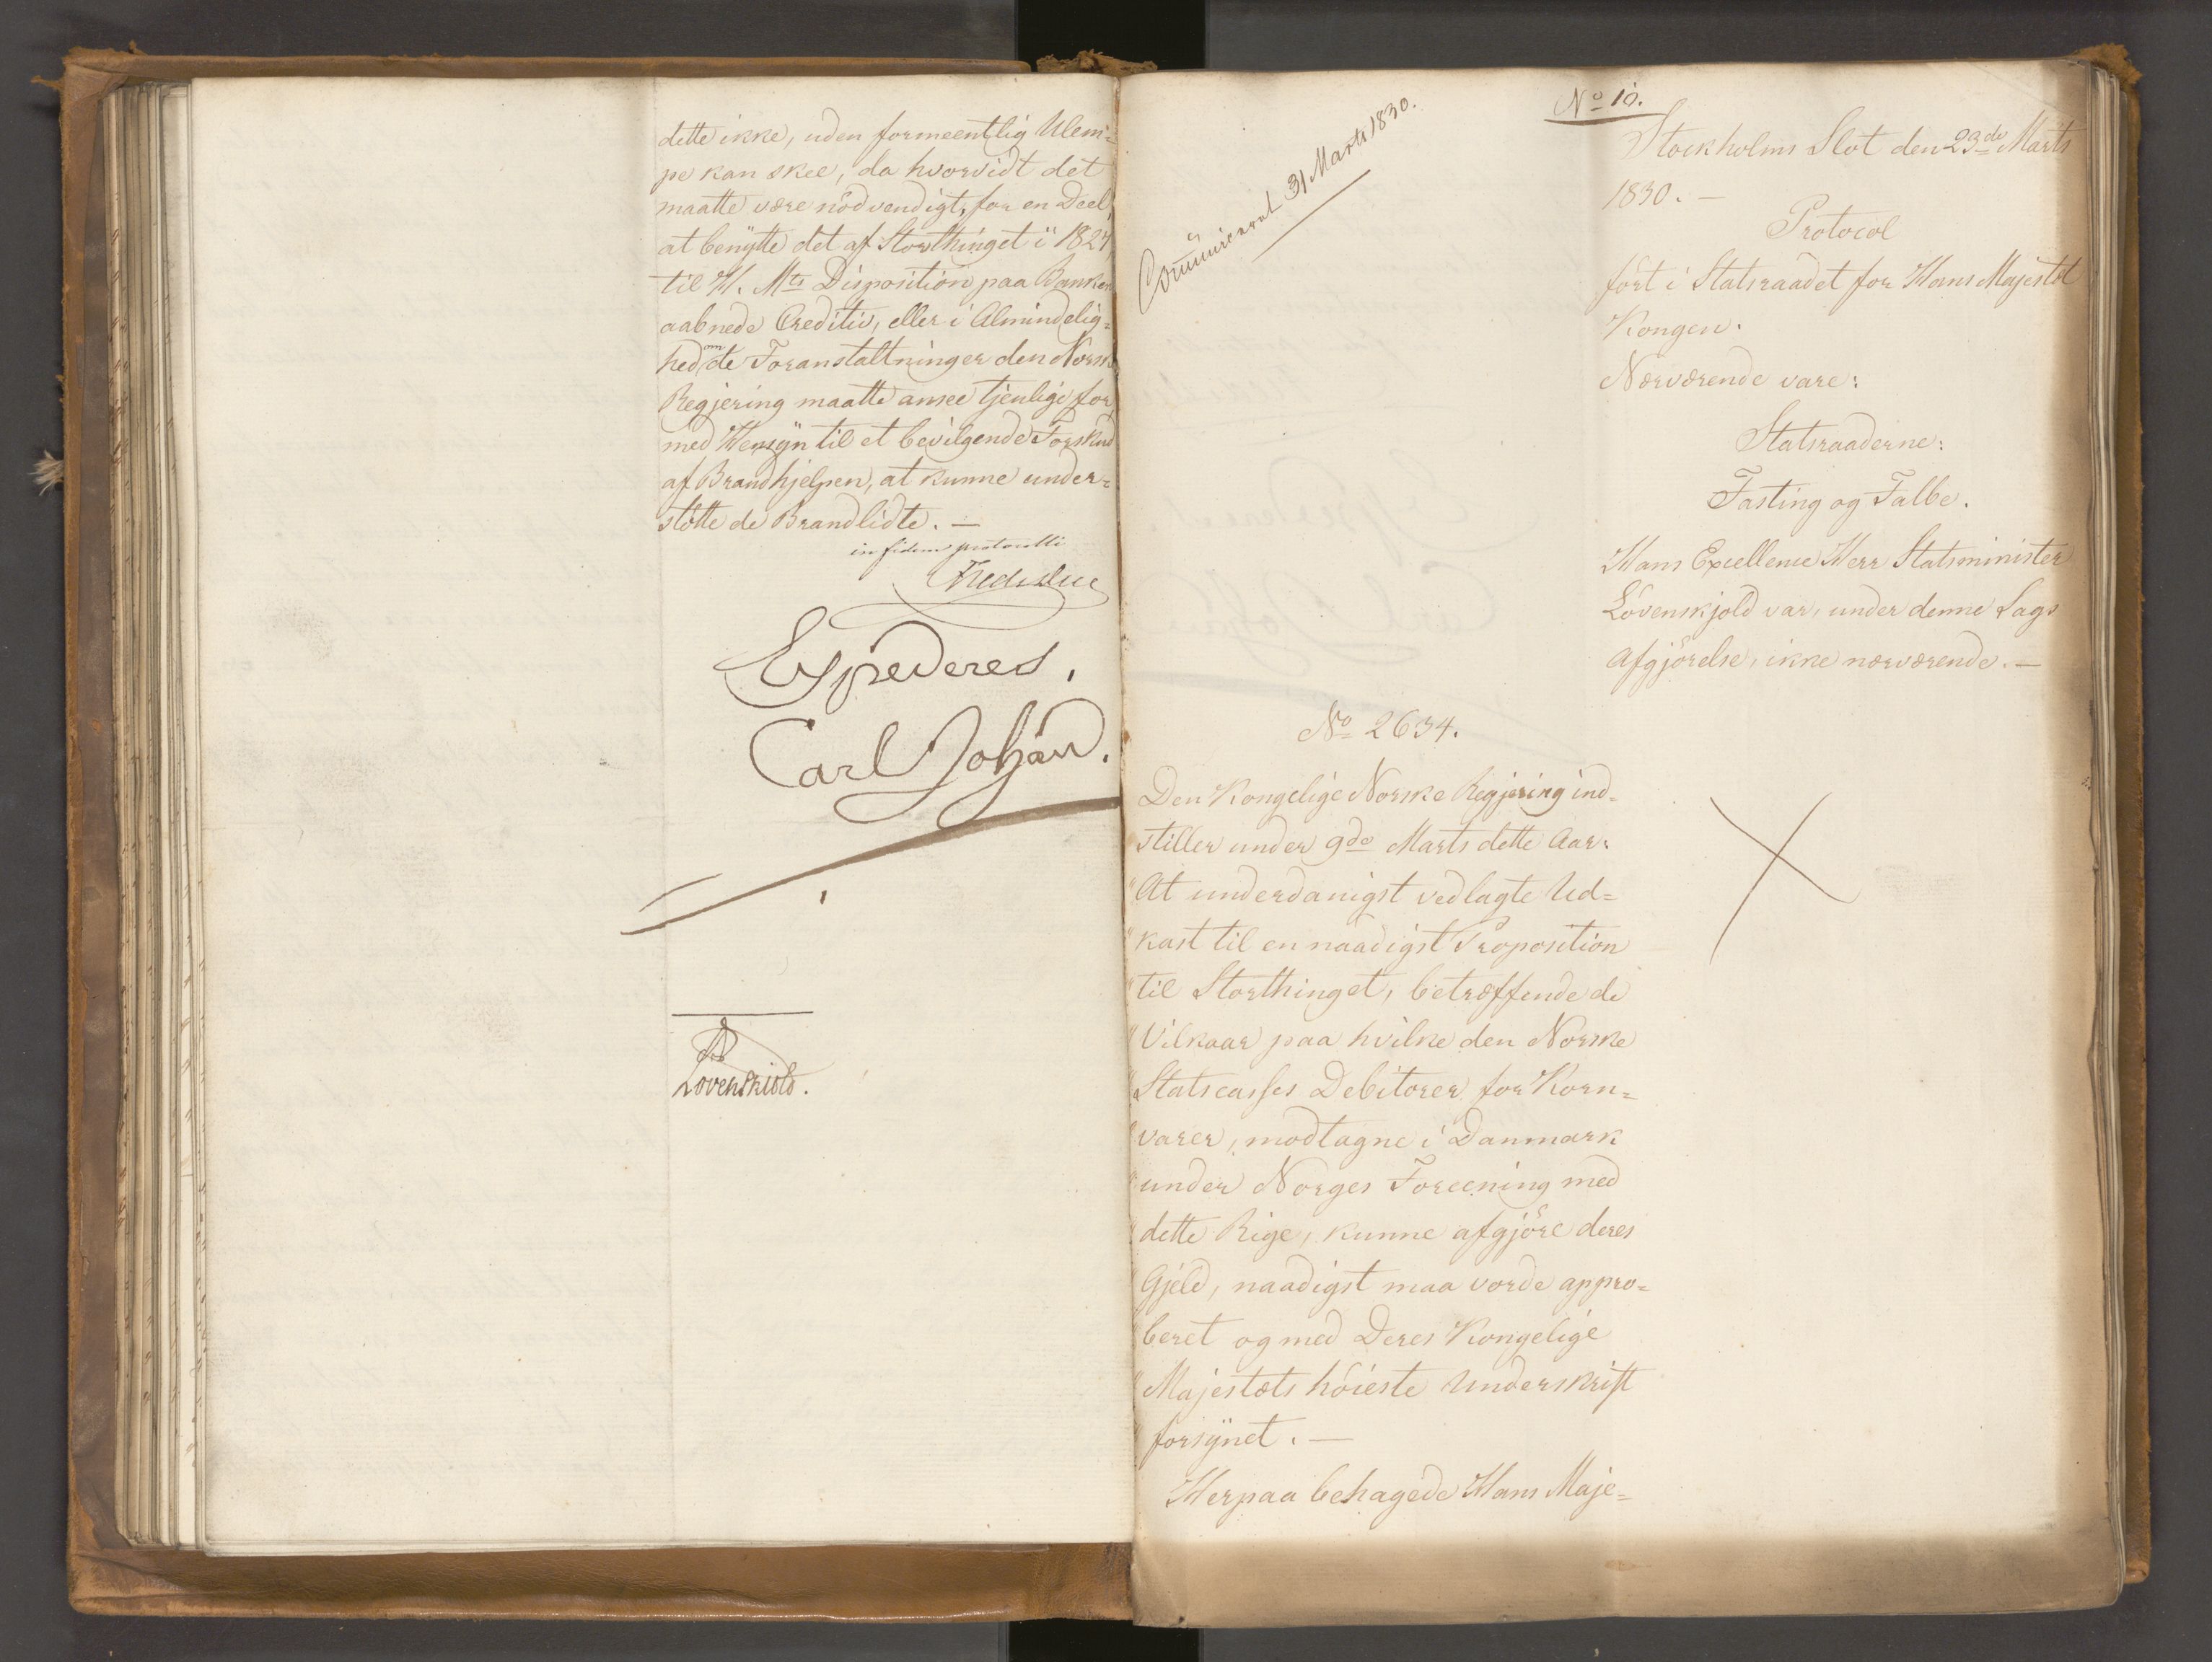 dette ikke, uden formeentlig Ulem=
pe kan skee, da hvorvidt det
maatte være nödvendigt, for en Deel,
at benÿtte det af Storthinget i 1827,
til H. Mts Disposition paa Banken
aabnede Creditiv, eller i Almindelig=
hed om de Foranstaltninger den Norske
Regjering maatte ansee tjenlige for,
med Hensÿn til et bevilgende Forskud
af Brandhjelpen, at kunne under=
stötte de Brandlidte. —
in fidem protocolli
Fredr Due
Expederes.
Carl Johan.
Løvenskiold.
No 10.
Communiceret 31 Marts 1830.
Stockholms Slot den 23de Marts
1830. —
Protocol
fört i Statsraadet for Hans Majestæt
Kongen.
Nærværende vare:
Statsraaderne:
Fasting og Falbe.
Hans Excellence Herr Statsminister
Lövenskjold var, under denne Sags
Afgjörelse, ikke nærværende. —
No 2634.
Den Kongelige Norske Regjering ind=
stiller under 9de Marts dette Aar:
"At underdanigst vedlagte Ud=
"kast til en naadigst Proposition
"til Storthinget, betræffende de
"Vilkaar paa hvilke den Norske
"Statscasses Debitorer for Korn=
"varer, modtagne i Danmark
"under Norges Foreening med
"dette Rige, kunne afgjöre deres
"Gjeld, naadigst maa vorde appro=
"beret og med Deres Kongelige
"Majestæts höieste Underskrift
"forsÿnet. —
Herpaa behagede Hans Maje=